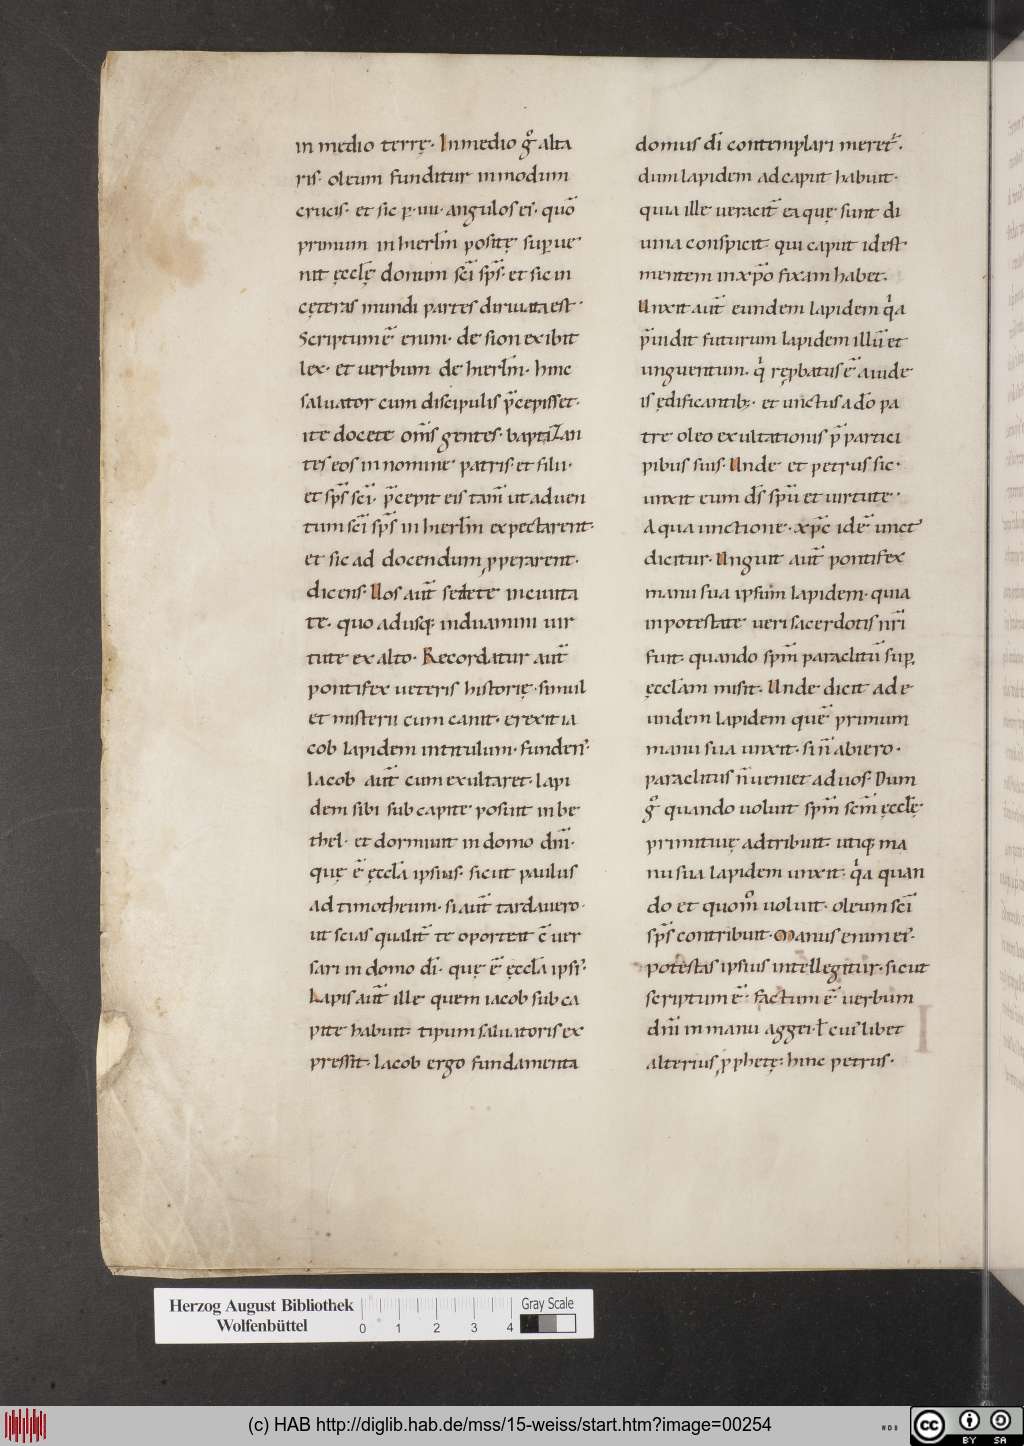 in medio terrę. Inmedio g̊ alta
ris. oleum funditur inmodum
crucis. et sic p̱ .iiii. angulos ei᷒. quō
primum in hierłm positę sup̱ ue
nit ęcclę̄ donum sc̄i sp̄s. et sic in
cęteras mundi partes diriuata est.
Scriptum ē enim. de sion exibit
lex. et uerbum de hierłm. hinc
saluator cum discipulis p̄cepisset.
ite docete om̄s gentes. baptizan
tes eos in nomine patris. et filii.
et sp̄s sc̄i. p̄cepit eis tam̄ ut aduen
tum sc̄i sp̄s in hierłm expectarent.
et sic ad docendum ꝓperarent.
dicens. Uos aut̄ sedete in ciuita
te. quo adusq; induamini uir
tute ex alto. Recordatur aut̄
pontifex ueteris historię. simul
et misterii cum canit. erexit ia
cob lapidem in titulum. funden᷒.
Iacob aut̄ cum exultaret. lapi
dem sibi sub capite posuit in be
thel. et dormiuit in domo dn̄i.
quę ē ęccła ipsius. sicut paulus
ad timotheum. si aut̄ tardauero.
ut scias qualit̄ te oporteat c̄uer
sari in domo dī. quę ē ęccła ipsi᷒.
Lapis aut̄ ille quem iacob sub ca
pite habuit. tipum saluatoris ex
pressit. Iacob ergo fundamenta
domus dī contemplari meret᷑.
dum lapidem ad caput habuit.
quia ille ueracit̄ ea quę sunt di
uina conspicit. qui caput idest
mentem in xp̄o fixam habet.
Unxit aut̄ eundem lapidem qͥa
p̄uidit futurum lapidem illū et
unguentum. qͥ rep̱batus ē a uide
is ędificantib;. et unctus a dō pa
tre oleo exultationis p̄ partici
pibus suis. Unde et petrus sic.
unxit eum d̄s sp̄u et uirtute.
A qua unctione. xp̄c idē unct᷒
dicitur. Unguit aut̄ pontifex
manu sua ipsum lapidem. quia
in potestate ueri sacerdotis nr̄i
fuit. quando sp̄m paraclitū sup̱
ęcclam misit. Unde dicit ad e
undem lapidem quē primum
manu sua unxit. si n̄ abiero.
paraclitus n̄ ueniet ad uos. Dum
g̊ quando uoluit sp̄m sc̄m ęcclę̄
primitiuę adtribuit. utiq; ma
nu sua lapidem unxit. qͥa quan
do et quom̊ uoluit. oleum sc̄i
sp̄s contribuit. Manus enim ei᷒.
potestas ipsius intellegitur. sicut
scriptum ē. factum ē uerbum
dn̄i in manu aggei. ł cui᷒libet
alterius ꝓphetę. hinc petrus.
Herzog August Bibliothek
Wolfenbüttel
0 1 2 3 4
Gray Scale
(c) HAB http://diglib.hab.de/mss/15-weiss/start.htm?image=00254
WDB
cc
BY SA